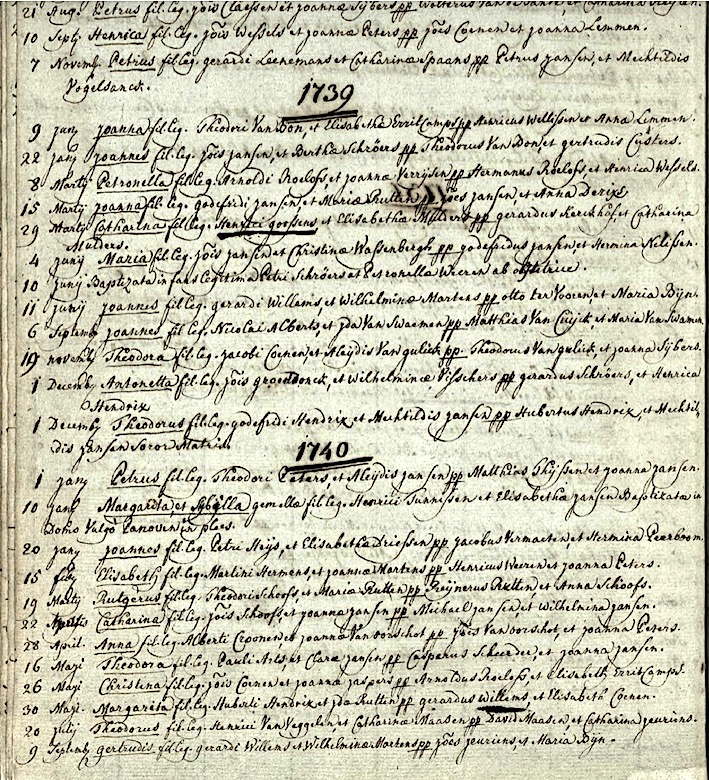 21 Aug. Petrus fil. leg. jois Claesen et joannæ Sijbers pp Wolterus Van de Sandt, et Catharina
10 Septb. Henrica fil. leg. jois Wessels et joannæ Peters pp jões Coenen et joanna Lemmen.
7 Novemb. Petrus fil. leg. gerardi Leenemans et Catharinæ Spaans pp Petrus jansen, et Mechtildis
Vogelsanck.
1739
9 janij joanna fil. leg. Theodori Van Bon, et Elisabethæ Erritcamps pp Henricus Willissen et Anna Lemmen.
22 janij joannes fil. leg. jois jansen, et Berthæ Schröers pp Theodorus Van Bon et gertrudis Custers.
8 Martij Petronella fil. leg. Arnoldi Roelofs et joannæ Verrijsen pp Hermanus Roelofs, et Henrica Wessels.
15 Martij joanna fil. leg. godefridi jansen, et Mariæ Rutten pp jões jansen, et Anna Derixs
29 Martij Catharina fil. leg. Henrici goossens et Elisabethæ Mulders pp gerardus Kerckhof, et Catharina
Mulders.
4 junij Maria fil. leg. jois jansen et Christinæ Wassenbergh pp godefridus jansen et Hermina Nelissen.
10 junij Baptizata infans legitima Petri Schröers et Petronellæ Weeren ab obstetrice.
11 junij joannes fil. leg. gerardi Willems, et Wilhelminæ Martens pp otto ter Vooren et Maria Bijn.
6 Septemb. joannes fil. leg. Nicolai Alberts, et jda Van Swaemen pp Matthias Van Cuijck, et Maria Van Swamen
19 novemb. Theodora fil. leg. jacobi Coenen et Aleydis Van gulick pp. Theodorus Van gulick, et joanna Sijbers.
1 Decemb. Antonetta fil. leg. jois groendonck, et Wilhelminæ Visschers pp gerardus Schröers, et Henrica
Hendrix
1 Decemb. Theodorus fil. leg. godefridi Hendrix et Mechtildis jansen pp Hubertus Hendrix, et Mechtil-
dis jansen Soror Matris.
1740
1 janij Petrus fil. leg. Theodori Peters et Aleydis jansen pp Matthias Thijssen et joanna jansen.
10 janij Margarita, et Sybilla gemellæ fil. leg. Henrici Tunnissen et Elisabethæ jansen Baptizatæ in
Domo Vulgo in plees.
20 janij joannes fil. leg. Petri Heijs, et Elisabethæ Driessen pp jacobus Vermasten, et Hermina Peerboom
15 feb. Elisabeth fil. leg. Martini Hermens, et joannæ Martens pp Henricus Weeren et joanna Peters.
19 Martij Rutgerus fil. leg. Theodori Schoofs et Mariæ Rutten pp Reijnerus Rutten, et Anna Schoofs.
22 Aprilis Catharina fil. leg. jois Schoofs et joannæ jansen pp Michael jansen, et Wilhelmina jansen.
28 April. Anna fil. leg. Alberti Croonen et joannæ Van oorschot pp jões Van oorschot, et joanna Peters.
16 Maji Theodora fil. leg. Pauli Arts et Claræ jansen pp Casperus Scheerder, et joanna jansen.
26 Maji Christina fil. leg. jois Coenen et joannæ jaspers pp Arnoldus Roelofs, et Elisabeth Erritcamps.
30 Maji. Margarita fil. leg. Huberti Hendrix et jdæ Rutten pp gerardus Willems et Elisabeth Coenen.
20 julij Theodorus fil. leg. Henrici Van Veggelen, et Catharinæ Maasen pp David Maasen, et Catharina jeuriens.
9 Septemb. gertrudis fil. leg. gerardi Willems et Wilhelminæ Martens pp jões jeuriens, et Maria Bijn.